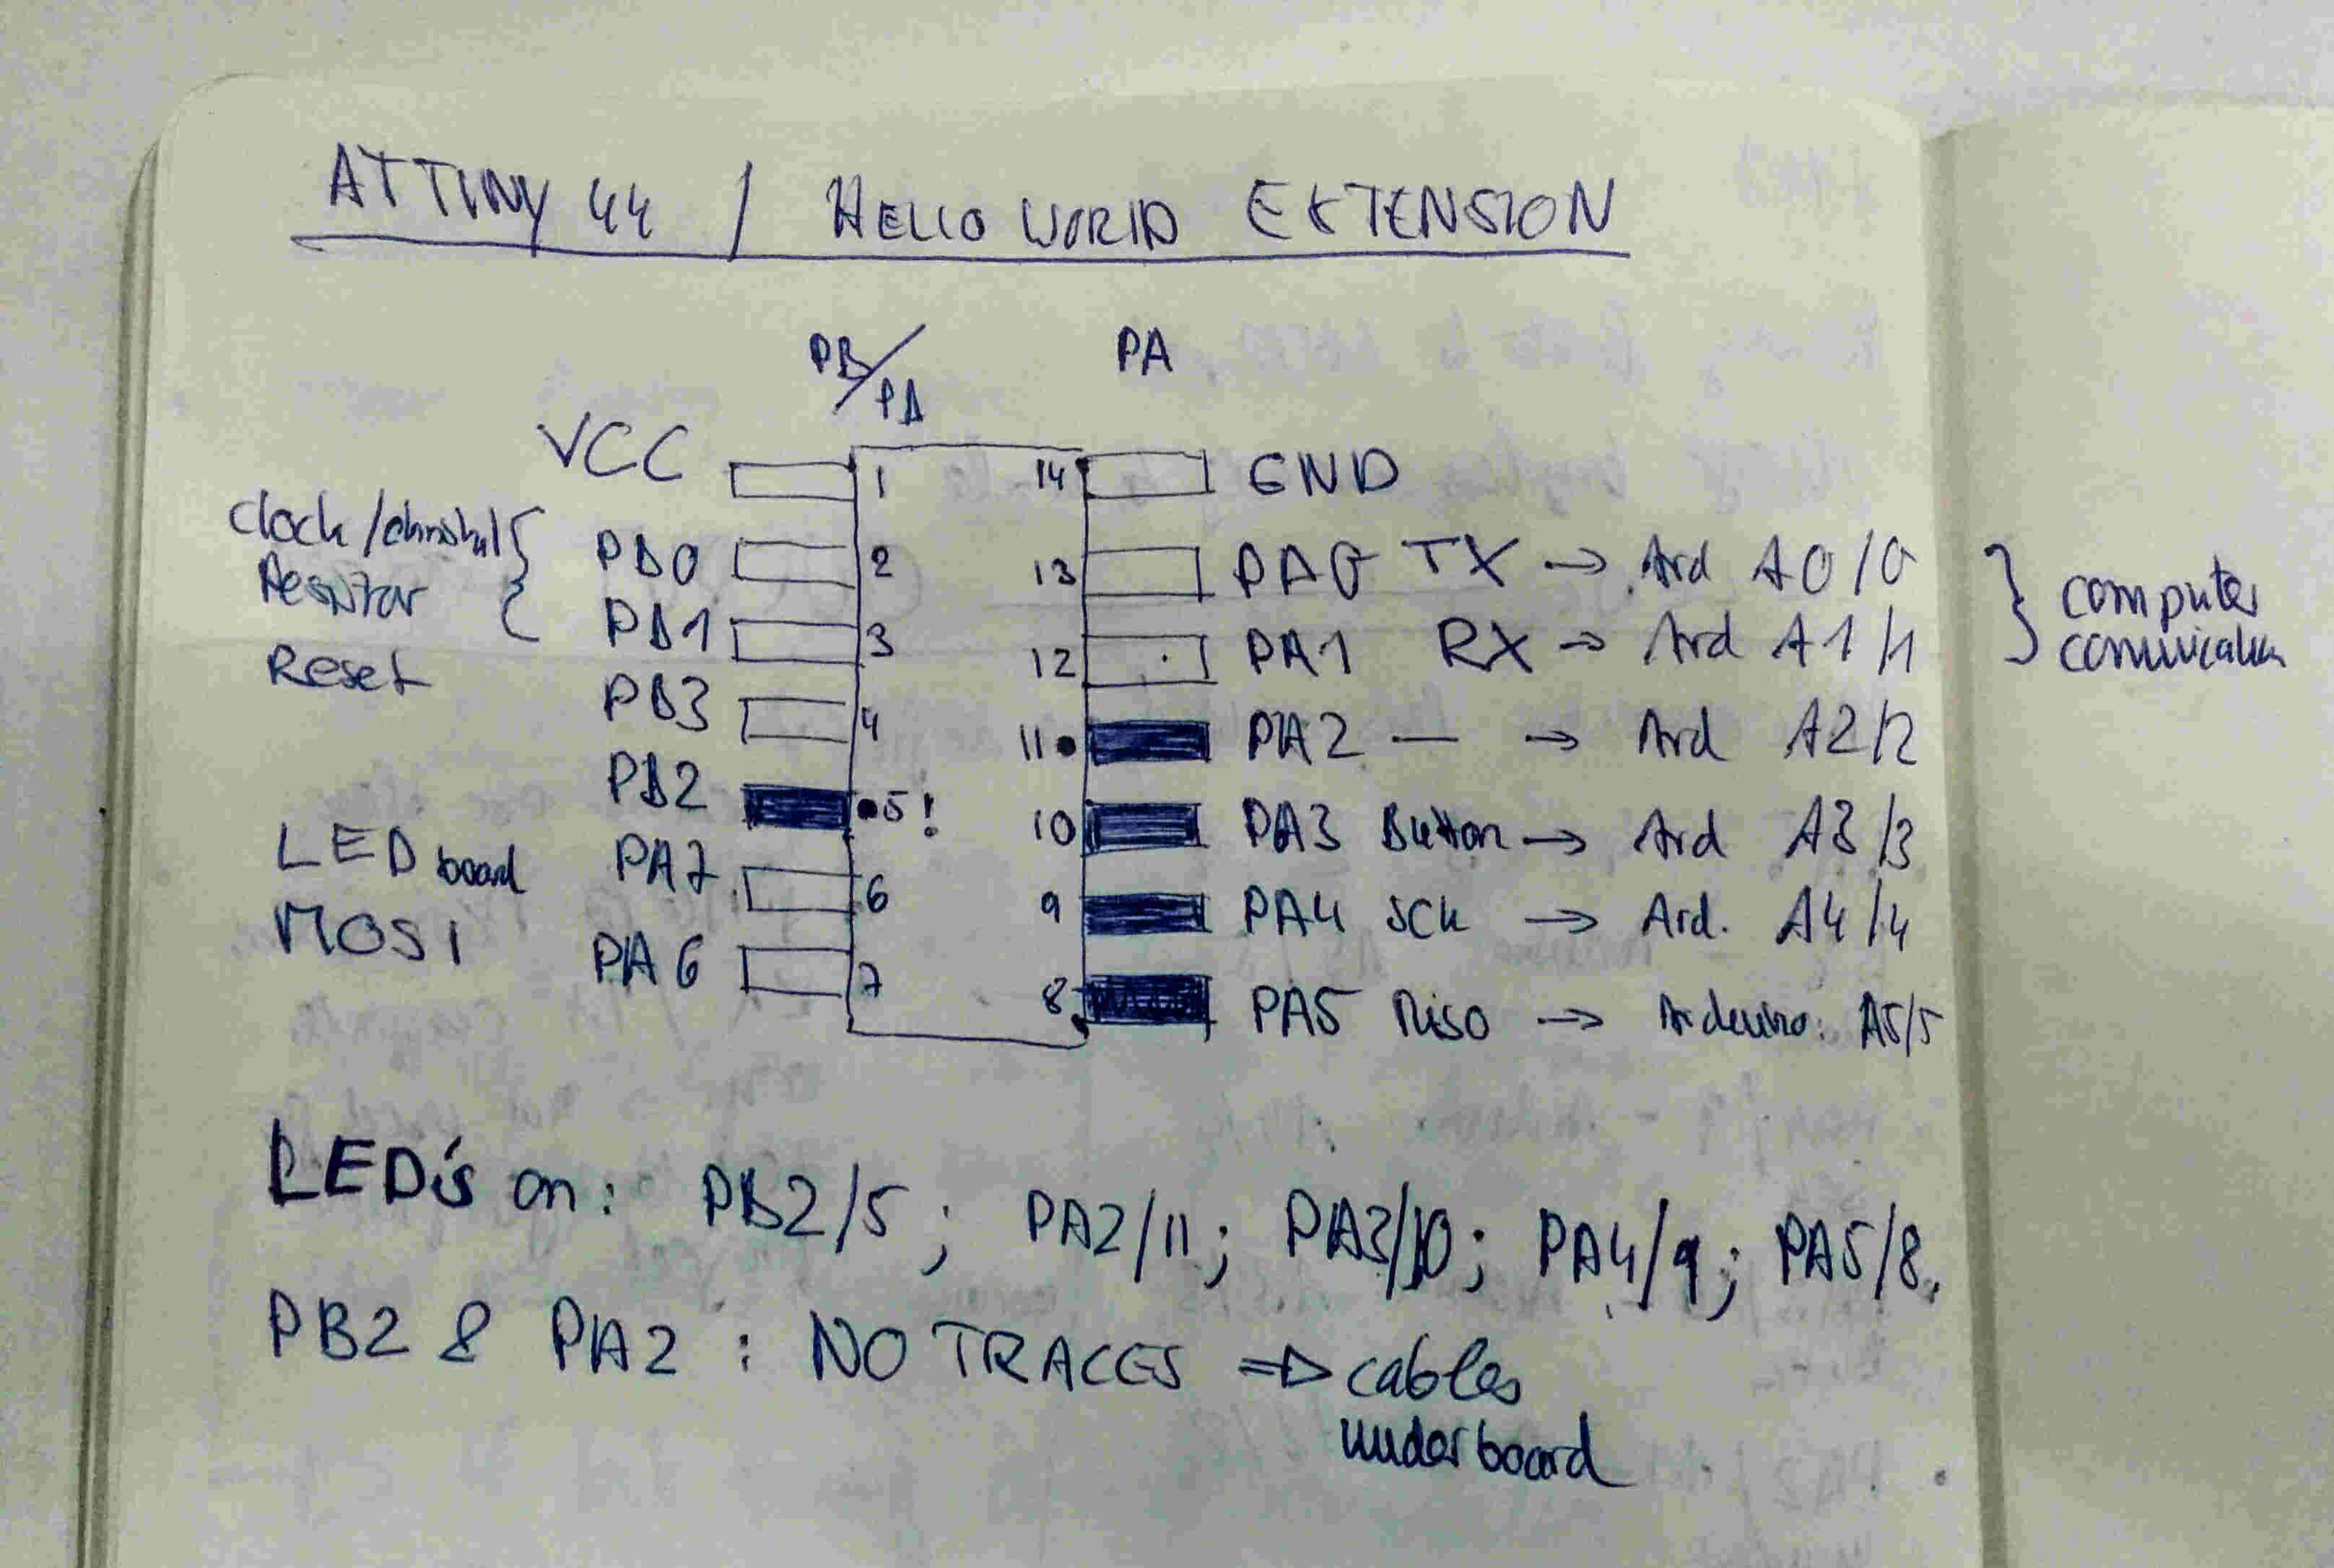 ATTINY 44 / HELLO WORLD EXTENSION
PB/PA PA
VCC 1 14 GND
Clock / PB0 2 13 PA0 TX → Ard A0/0
Resistor PB1 3 12 PA1 RX → Ard A1/1
computer
Reset PB3 4 11 PA2 — → Ard A2/2
PB2 5! 10 PA3 Button → Ard A3/3
LED board PA7 6 9 PA4 SCK → Ard. A4/4
MOSI PA6 7 8 PA5 Miso → Arduino: A5/5
LED's on: PB2/5; PA2/11; PA3/10; PA4/9; PA5/8.
PB2 & PA2 : NO TRACES ⇒ cables
underboard